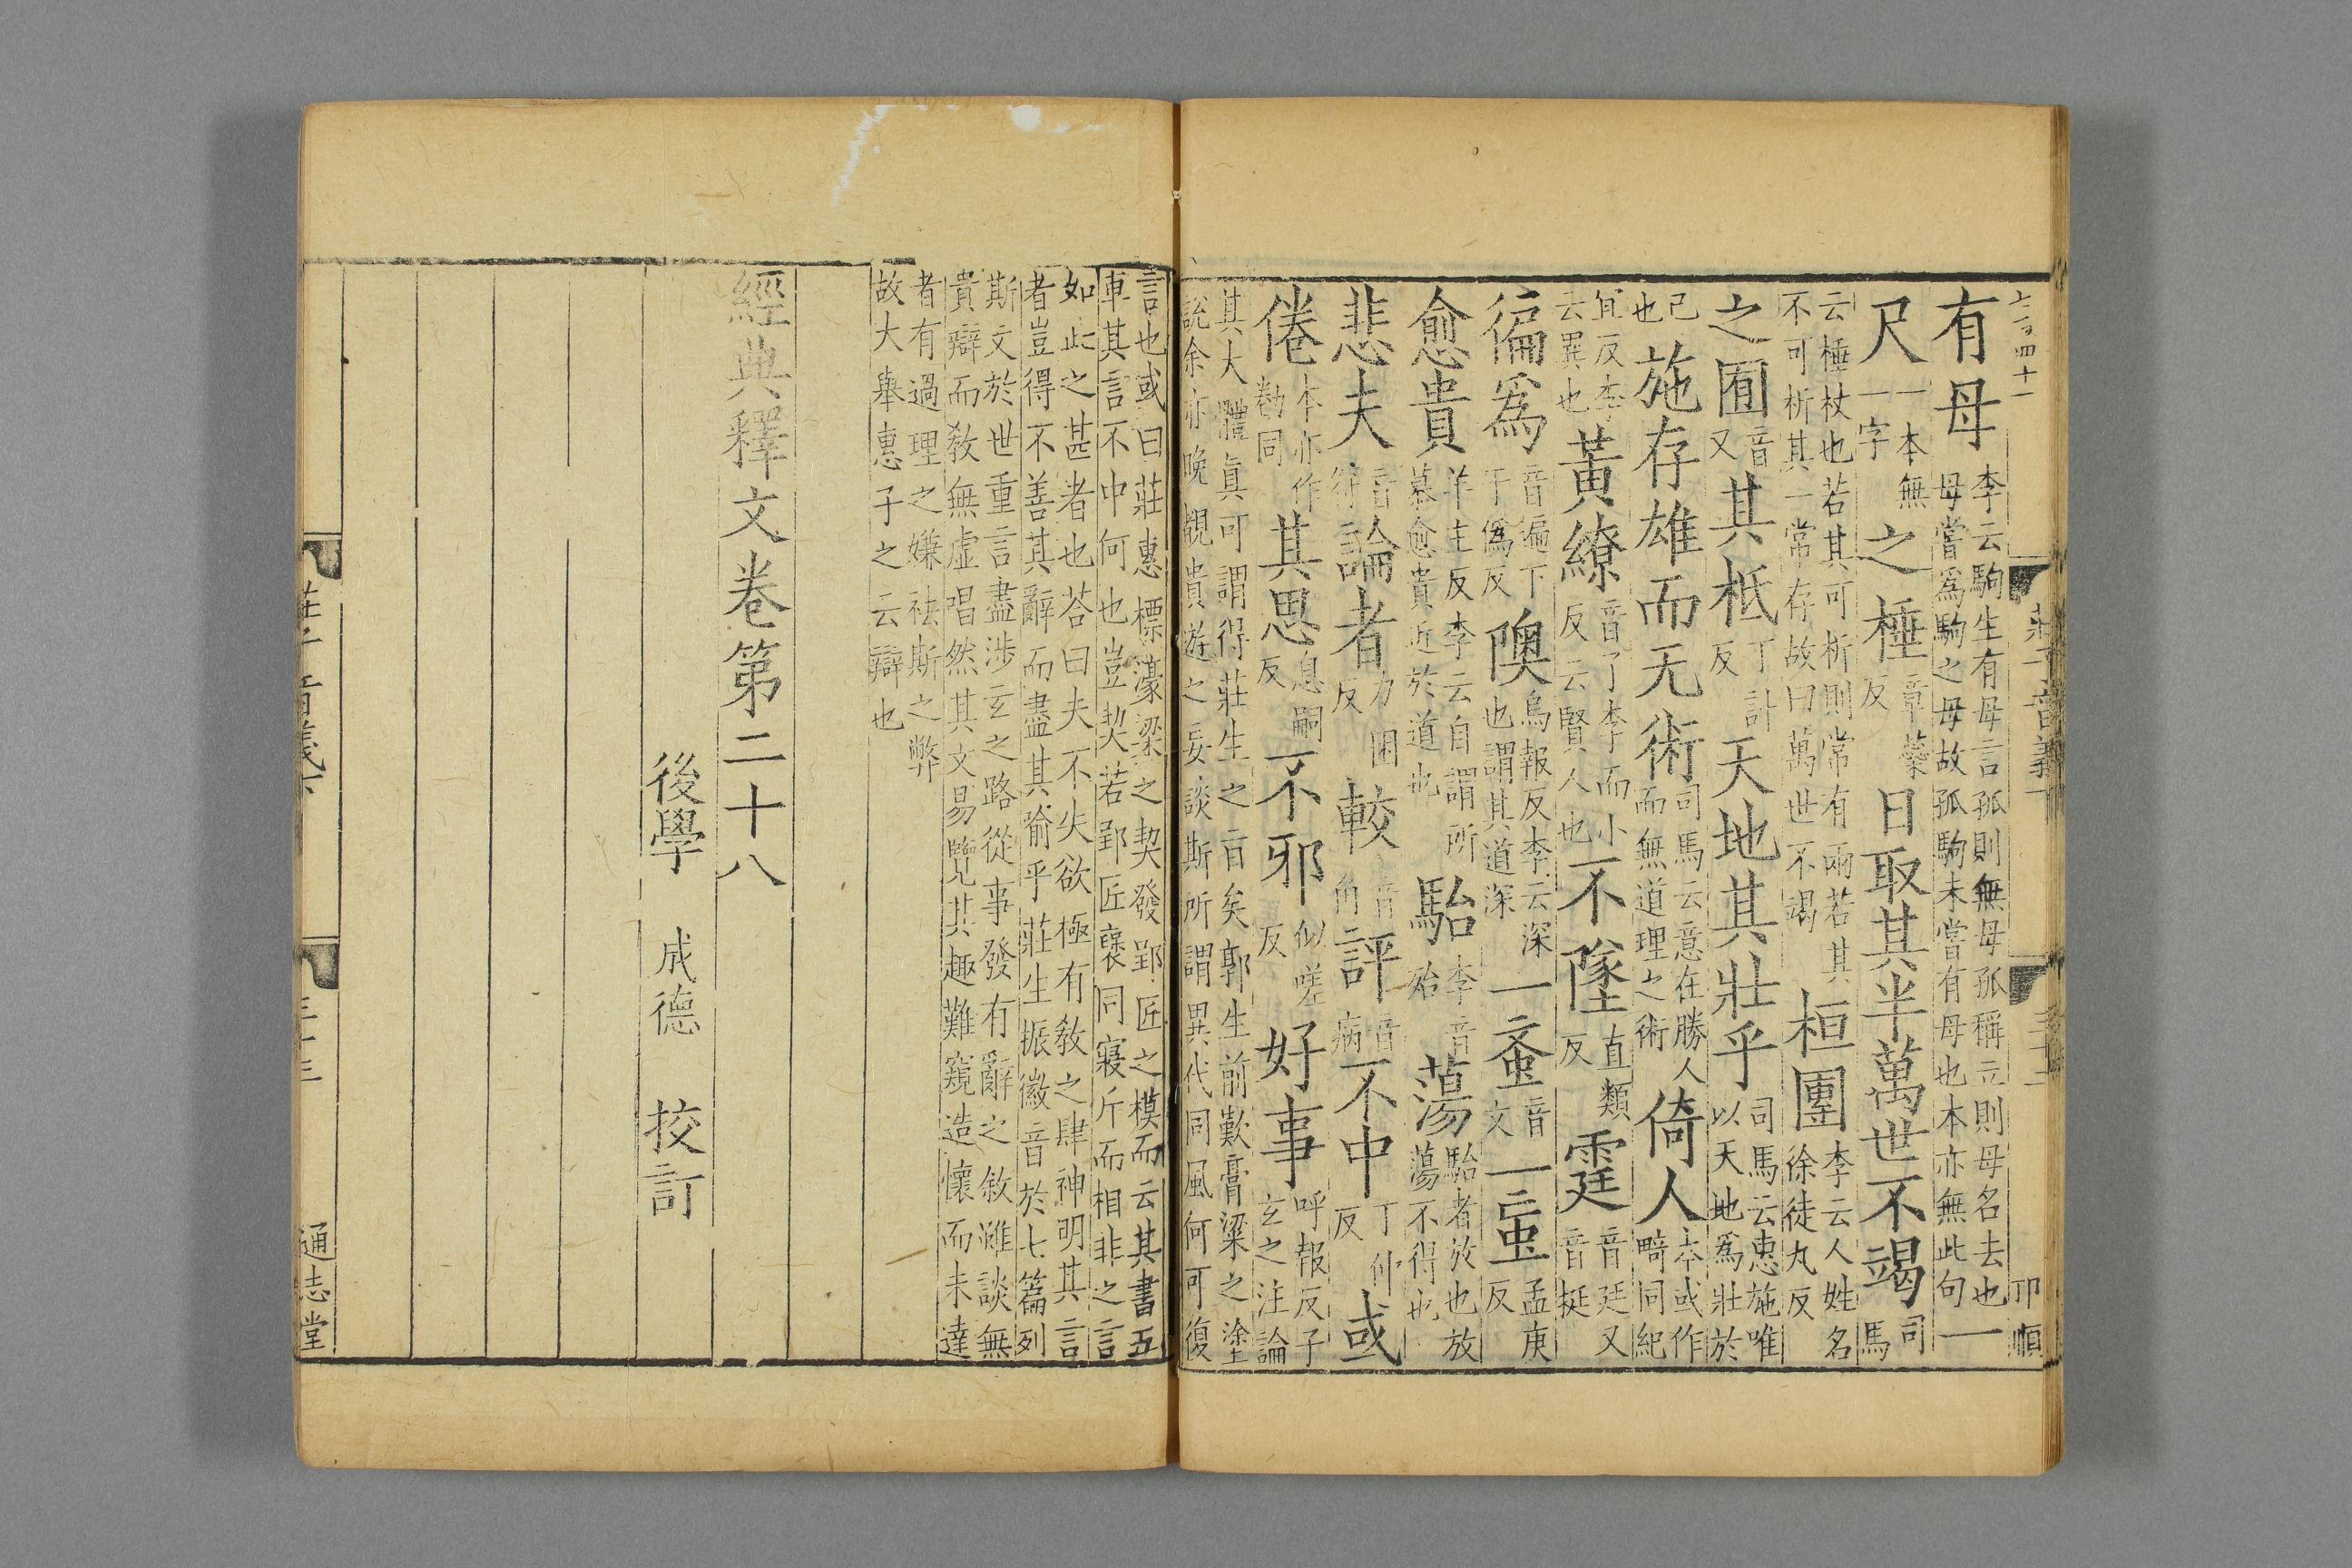 莊子音義下
卬順
有母李云駒生有母言孤則無母孤稱立則母名去也母嘗爲駒之母故孤駒未嘗有母也本亦無此句一
尺一本無一字之棰章蘂反日取其半萬世不竭司馬
云棰杖也若其可析則常有兩若其不可析其一常存故曰萬世不竭桓團李云人姓名徐徒丸反
之囿音又其柢丁計反天地其壯乎司馬云惠施唯以天地爲壯於
己也施存雄而无術司馬云意在勝人而無道理之術倚人本或作畸同紀
宜反李云異也黃繚音了李而小反云賢人也不墜直類反霆音廷又音挺
徧爲音遍下于僞反隩烏報反李云深也謂其道深一蚉音文一䖟孟庚反
愈貴羊主反李云自謂所慕愈貴近於道也駘李音殆蕩駘者放也放蕩不得也
悲夫音符論者力困反較音角評音病不中丁仲反或
倦本亦作勌同其思息嗣反不邪似嗟反好事呼報反子玄之注論
其大體眞可謂得莊生之旨矣郭生前歎膏粱之塗說余亦晚覩貴遊之妄談斯所謂異代同風何可復
言也或曰莊惠標濠梁之契發郢匠之模而云其書五車其言不中何也豈契若郢匠褒同寢斤而相非之言
如此之甚者也荅曰夫不失欲極有教之肆神明其言者豈得不善其辭而盡其喻乎莊生振徽音於七篇列
斯文於世重言盡涉玄之路從事發有辭之敘雖談無貴辯而敎無虛唱然其文易覽其趣難窺造懷而未達
者有過理之嫌祛斯之弊故大舉惠子之云辯也
經典釋文卷第二十八
後學 成德 挍訂
莊子音義下
通志堂